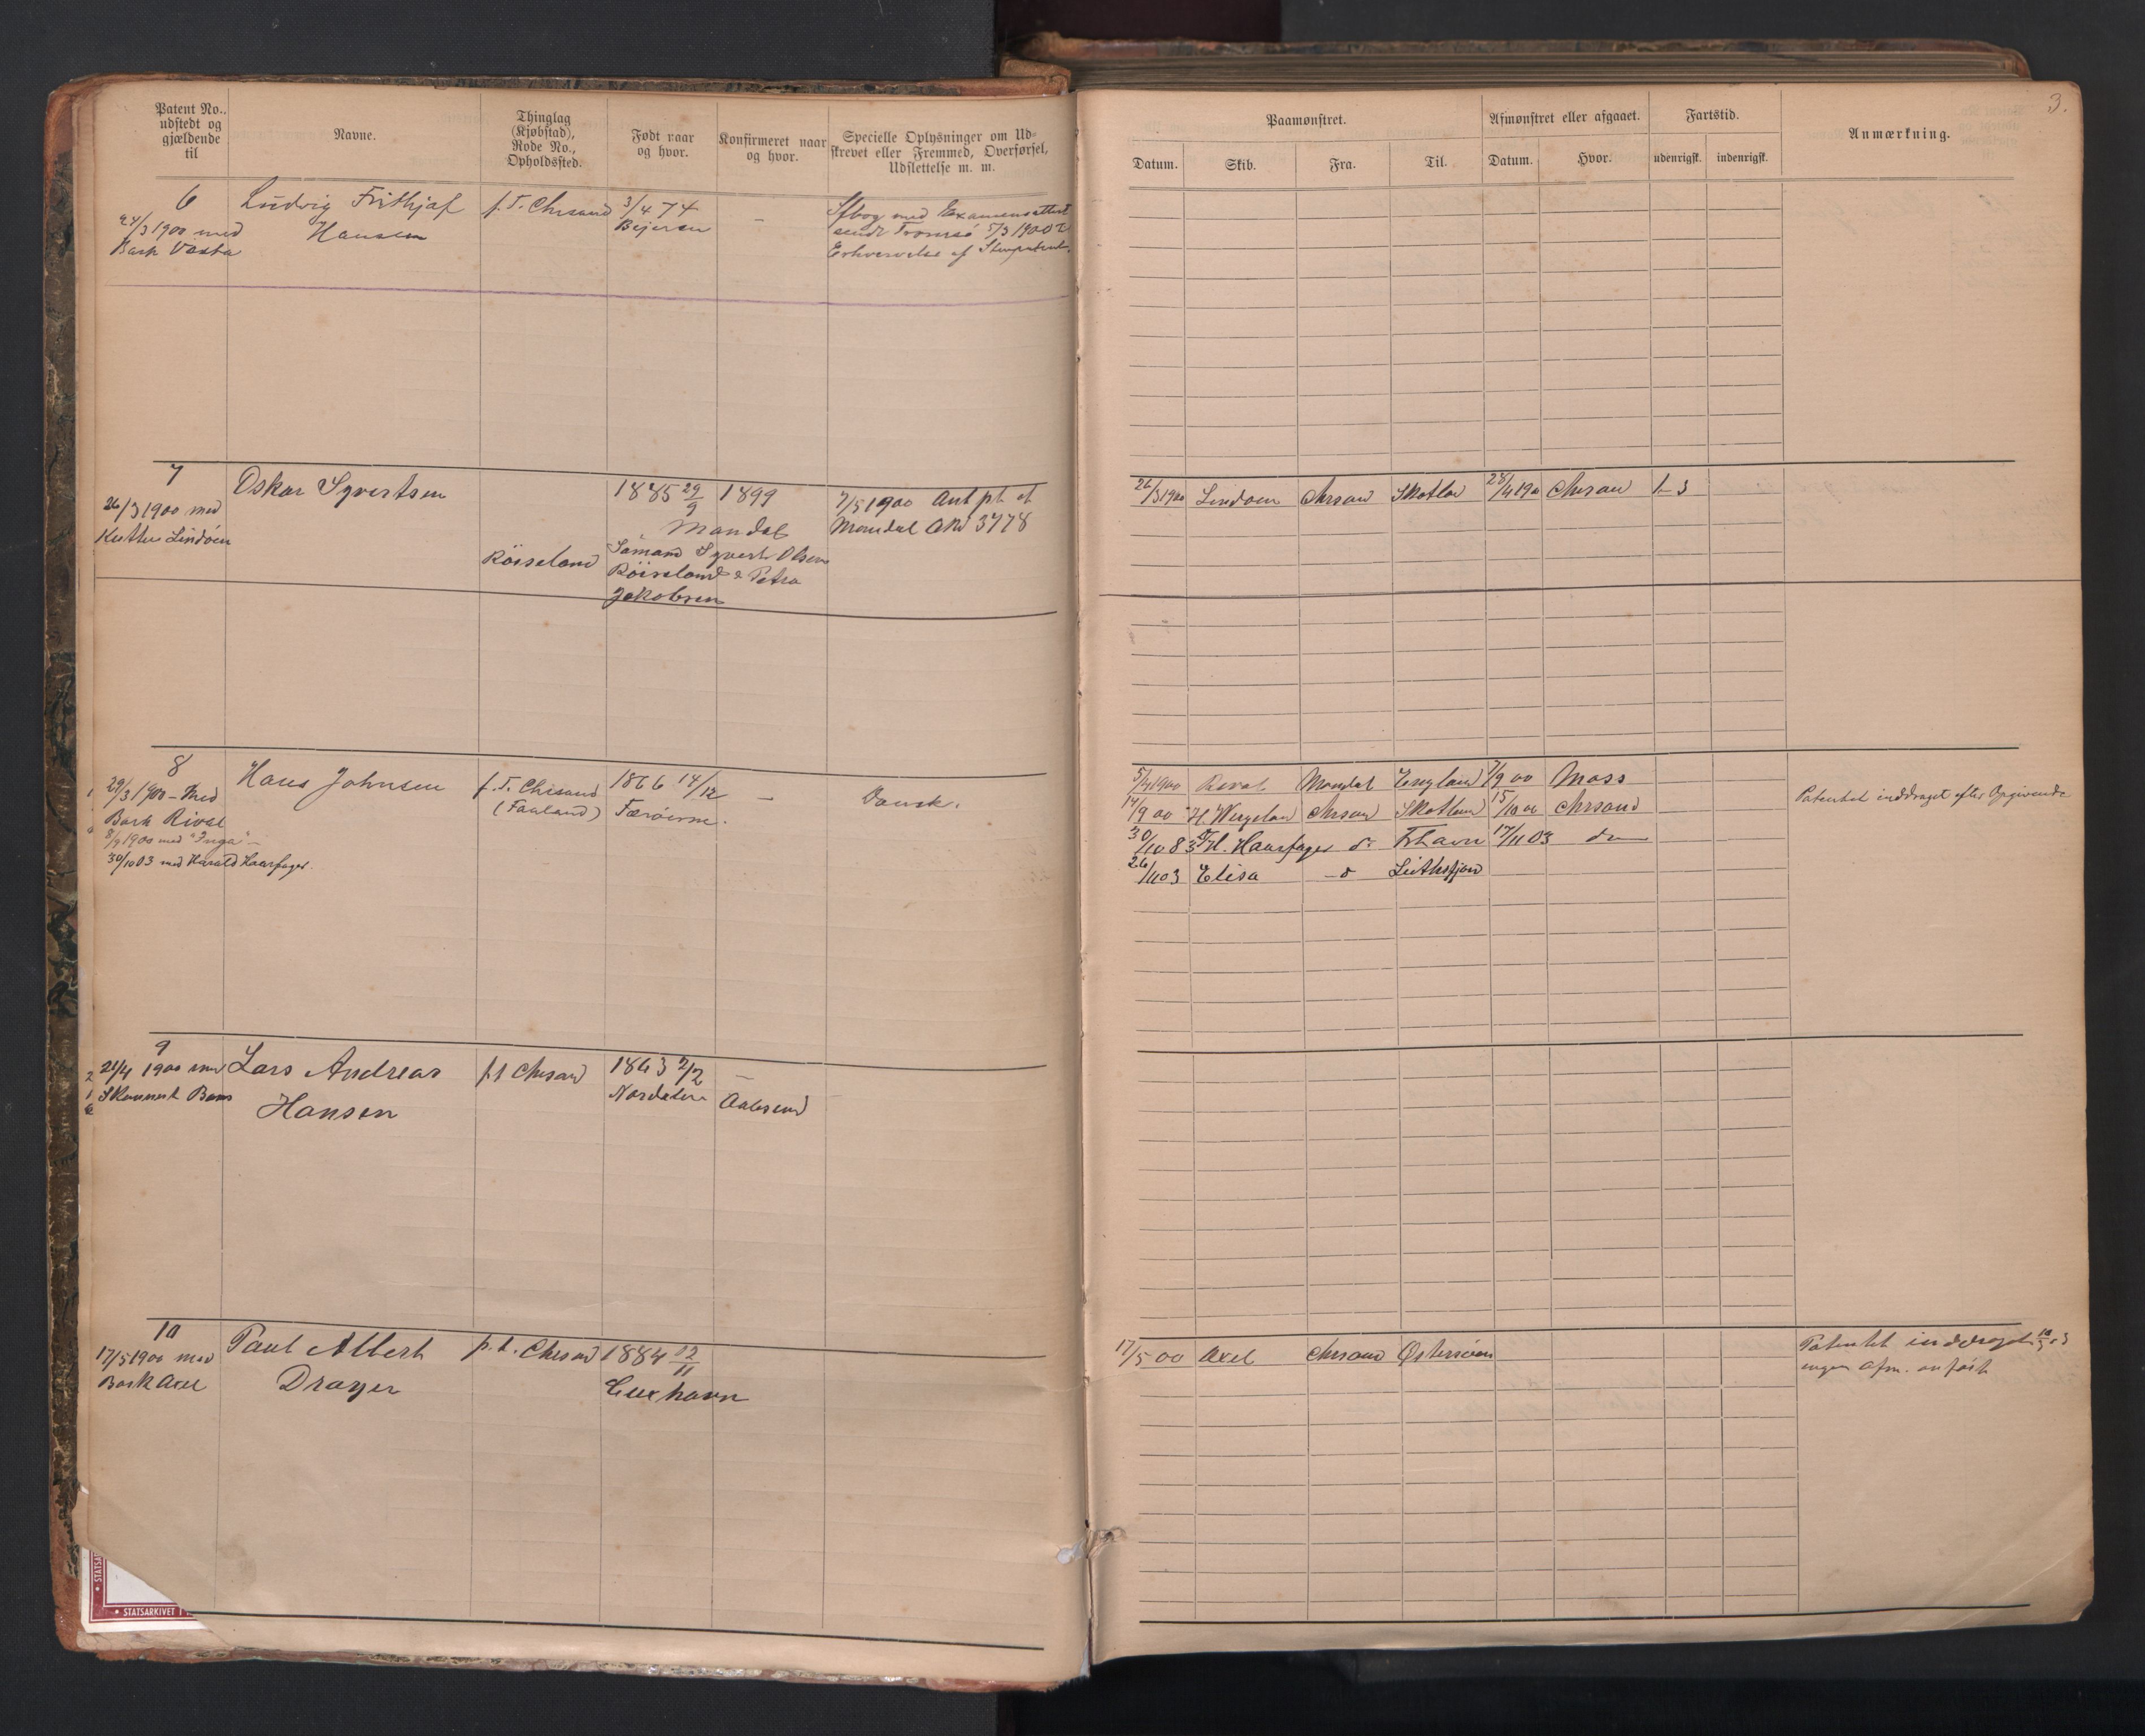 Patent No.
udstedt og
gjældende
til
Navne.
Thinglag
(Kjøbstad),
Rode No.,
Opholdssted.
Født naar
og hvor.
Konfirmeret naar
og hvor.
Specielle Oplysninger om Ud-
skrevet eller Fremmed, Overførsel,
Udslettelse m. m.
6
24/3 1900 med
Bark Vasta
Ludvig Frithjof
Hansen
p. T. Chrsand
3/4 74
Bejeren
Sfbog med Examensattest
sendt Tromsö 5/3 1900 T
Erhvervelse af
7
26/3 1900 med
Kutter Lindöen
Oskar Syvertsen
Röiseland
1885 29/9
1899
Mandal
Sömand Syvert Olsen
Röiseland & Petra
Jakobsen
7/5 1900 Ant pt at
Mandal 3778
8
29/3 1900 - Med
Bark Rival
8/9 1900 med "Inga" -
30/10 03 med Harald Haarfager.
Hans Johnsen
p. T. Chrsand
(Fauland)
1866 14/12
Færöerne.
-
Dansk.
9
21/4 1900 med
Skonnert Bams
Lars Andreas
Hansen
p t Chrsand
1863 2/2
Nordalen
-
Aalesund
10
17/5 1900 med
Bark Axel
Paul Albert
Drayer
p. t. Chrsand
1884 02/11
Cuxhavn
STATSARKIVET I
3.
Paamønstret.
Afmønstret eller afgaaet.
Fartstid.
Anmærkning.
Datum.
Skib.
Fra.
Til.
Datum.
Hvor.
udenrigsk.
indenrigsk.
26/3 1900 Lindöen Chrsan Skotlan 28/4 190 Chrsan 1-3
5/4 1900 Rival Mandal England 7/9 00 Moss
14/9 00 H. Wergelan Chrsan Skotlan 15/10 00 Chrsand
Patentet inddraget efter Opgivende
30/10 03 H. Haarfager do Frhavn 17/11 03 do
26/11 03 Elisa - o
17/5 00 Axel Chrsand Østersöen
Patentet inddraget
ingen Afm. anført